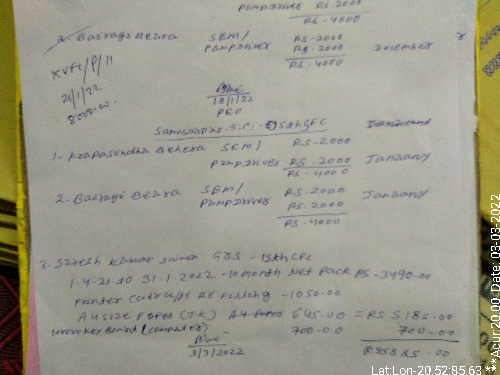 PumpDriver RS-2000
RS-4000
2- Bairagi Behera SEM/ RS-2000
PumpDriver RS-2000 December
RS-4000
XVFC/P/11
21/1/22
18/1/22
PEO
G.P. - 15th CFC
1- Krapasindhu Behera SEM/ RS-2000
PumpDriver RS-2000 January
RS-4000
2- Bairagi Behera SEM/ RS-2000 January
PumpDriver RS-2000
RS-4000
3- Suresh Kumar Swain GRS - 15th CFC
1-4-21 to 31-1-2022 - 10 month Net Pack RS-3490-00
Printer Catridge Refilling - 1050-00
A4 Size Paper (J.K) A4 Paper 645-00 = RS 5185-00
Board (Computer) 700-00 700-00
RS5885-00
3/3/2022
Lat:Lon-20.52:85.63
**Acur:20.00 Date: 03-03-2022